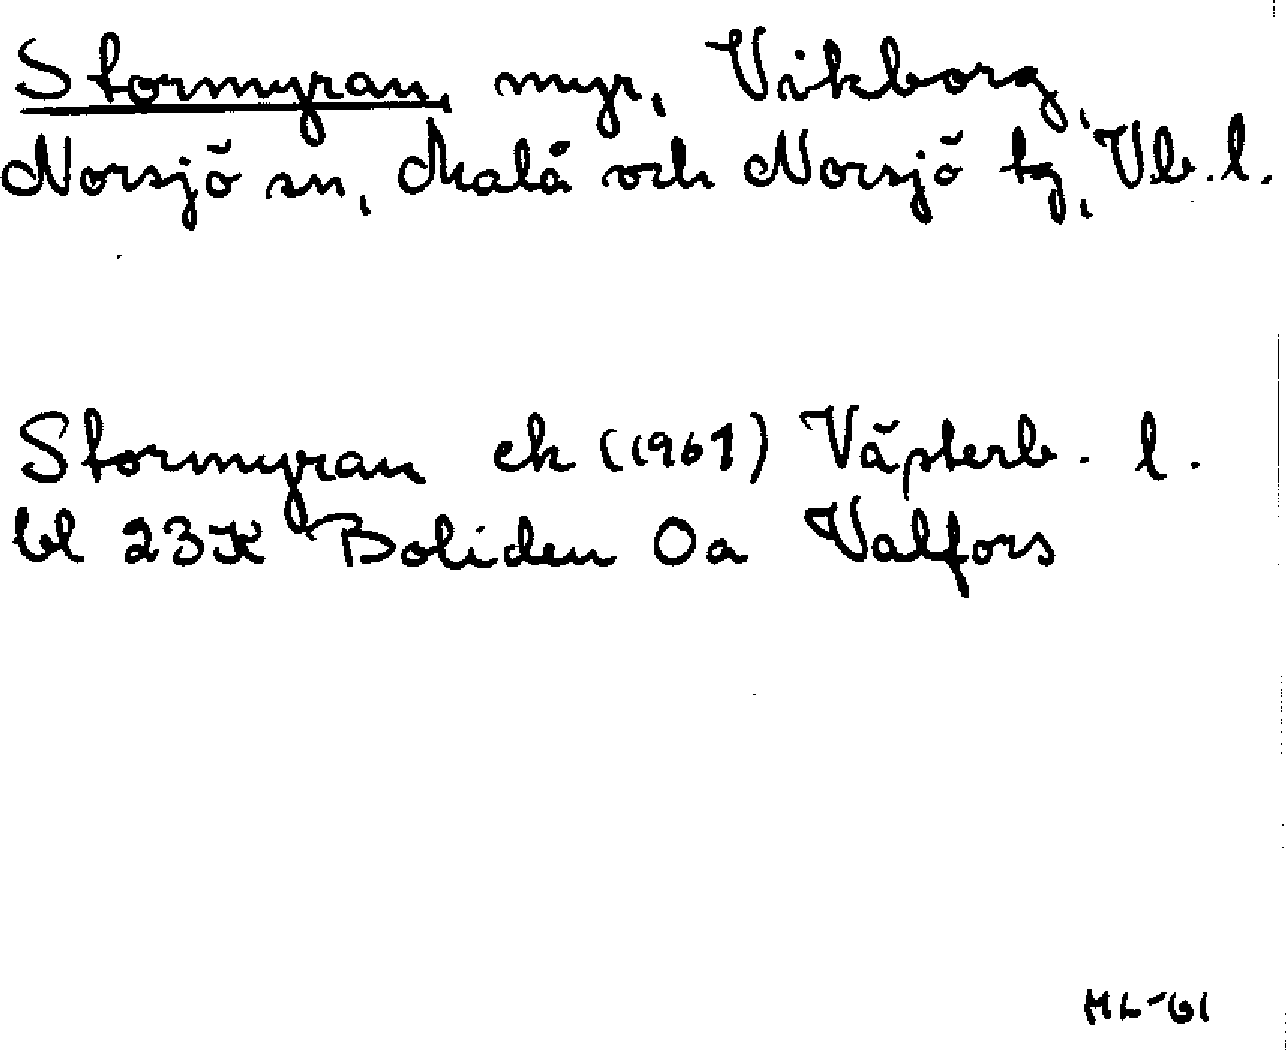 Stormyran, myr, Vikborg,
Norsjö sn, Malå och Norsjö tg, Vb. l.
Stormyran ek (1961) Västerb. l.
bl 23 K Boliden 0a Valfors
HL-61